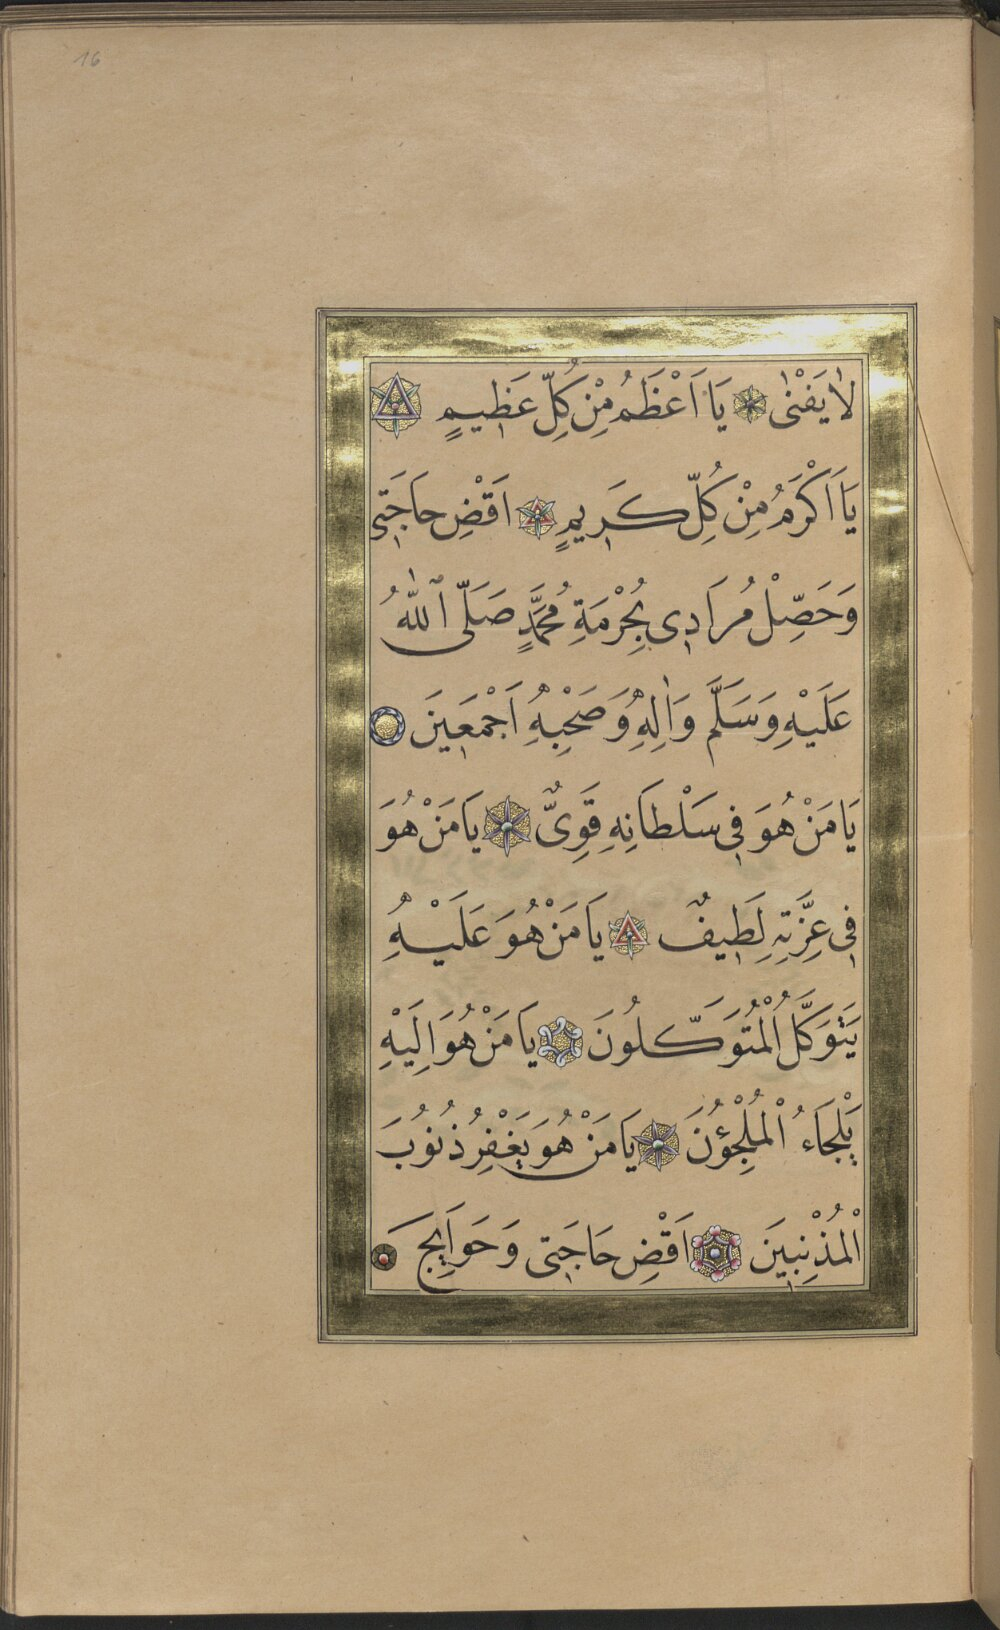 16
لَا يَفْنٰى يَا اَعْظَمُ مِنْ كُلِّ عَظِيمٍ
يَا اَكْرَمُ مِنْ كُلِّ كَرِيمٍ اَقْضِ حَاجَتِى
وَحَصِّلْ مُرَادِى بِحُرْمَةِ مُحَمَّدٍ صَلَّى ٱللّٰهُ
عَلَيْهِ وَسَلَّمَ وَاٰلِهِ وَصَحْبِهِ اَجْمَعِينَ
يَا مَنْ هُوَ فِى سَلْطَانِهِ قَوِىٌّ يَا مَنْ هُوَ
فِى عِزَّتِهِ لَطِيفٌ يَا مَنْ هُوَ عَلَيْهِ
يَتَوَكَّلُ الْمُتَوَكِّلُونَ يَا مَنْ هُوَ اِلَيْهِ
يَلْجَاءُ الْمُلْجِؤُنَ يَا مَنْ هُوَ يَغْفِرُ ذُنُوبَ
الْمُذْنِبِينَ اَقْضِ حَاجَتِى وَحَوَايِجَ